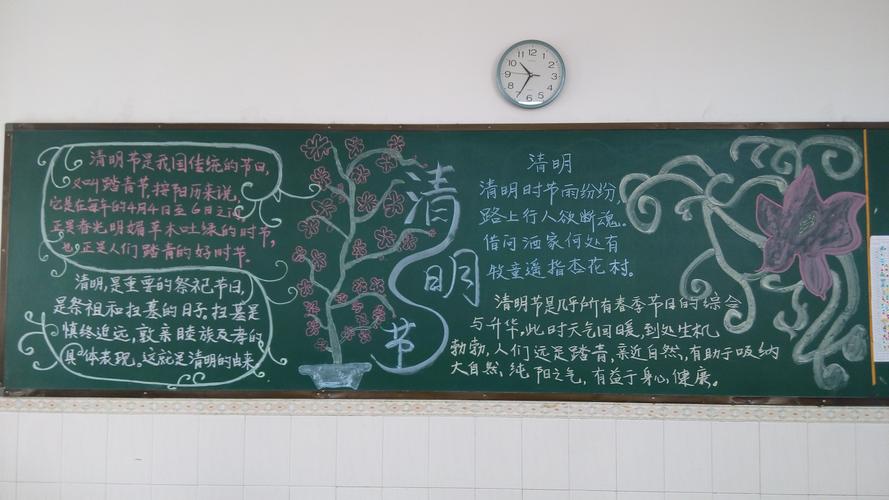 清明节是我国传统的节日,
又叫踏青节,按阳历来说,
它是在每年的4月4日至6日之间,
正是春光明媚草木吐绿的时节,
也正是人们踏青的好时节。
清明,是重要的祭祀节日,
是祭祖和扫墓的日子,扫墓是
慎终追远,敦亲睦族及孝的
具体表现。这就是清明的由来
清明节
清明
清明时节雨纷纷,
路上行人欲断魂。
借问酒家何处有
牧童遥指杏花村。
清明节是几乎所有春季节日的综合
与升华,此时天气回暖,到处生机
勃勃,人们远足踏青,亲近自然,有助于吸纳
大自然纯阳之气,有益于身心健康。
12
1
2
3
4
5
6
7
8
9
10
11